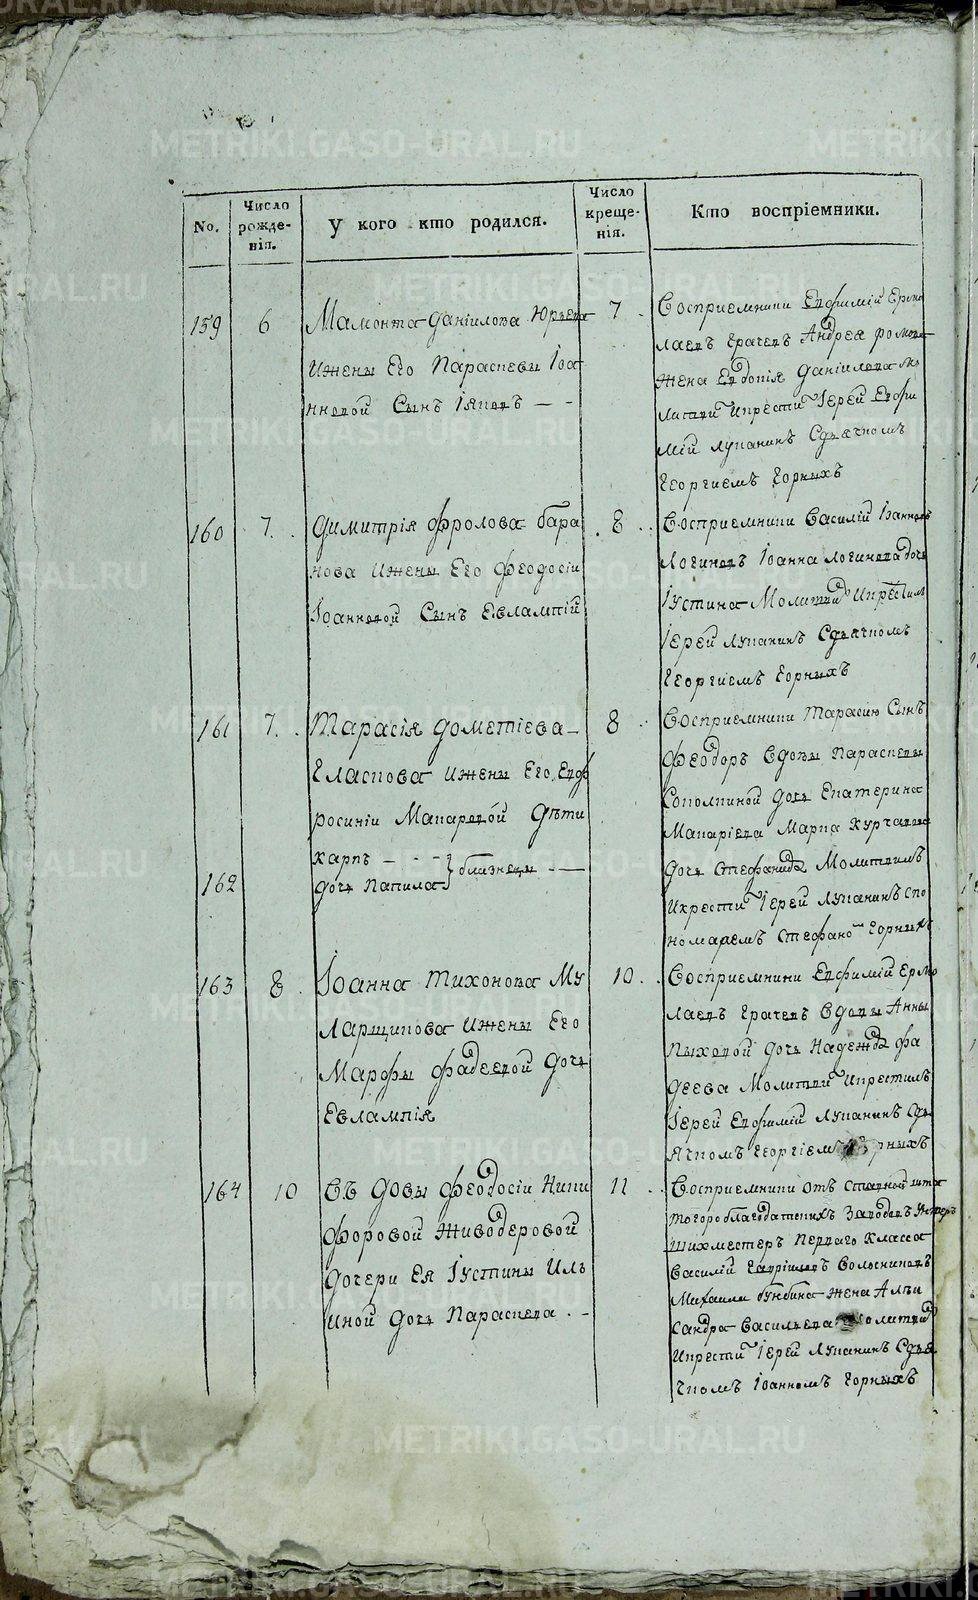 No.
Число рожде-
нія.
У кого кто родился.
Число
креще-
нія.
Кто воспріемники.
159
6
Мамонта Даніилова Юрьева
ижены Его Параскевы Іоа
нновой Сынъ Іяковъ — -
7
Восприемники Евфимій Ермо
лаевъ Грачевъ Андрея
жена Евдокія Даніилова Мо
литви Икрести Іерей Евфи
мій Лупанинъ Сдьячкомъ
Георгиемъ Горныхъ
160
7.
Димитрія Фролова Бара
нова Ижены Его Феодосіи
Іоанновой Сынъ Евлампій
8
Восприемники Василій Іванновъ
Логиновъ Іоанна Логинова дочь
Іустина Молитви Икрестилъ
Іерей Лупанинъ Сдьячкомъ
Георгиемъ Горныхъ
161
7.
Тарасія Дометіева
Гласкова Ижены Его Евф
росиніи Макаровой Дѣти
Карпъ — - -
162
Дочь Капила } близнецы - —
8
Восприемники Тарасию Сынъ
Феодоръ Вдовы Параскевы
Дочь Екатерина
Макаріева Марка Курчавова
Дочь Стефанида Молитвилъ
Икрести Іерей Лупанинъ Спо
номаремъ Стефано Горныхъ
163
8
Іоанна Тихонова Му
ларщикова Ижены Его
Марфы Фадеевой Дочь
Евлампія
10
Восприемники Евфимій Ермо
лаевъ Грачевъ Вдовы Анны
Пыховой Дочь Надежда Фа
деева Молитви Икрестилъ
Іерей Евфимій Лупанинъ Сдь
ячкомъ Георгіемъ Горныхъ
164
10
Въ Довы Феодосіи Ники
форовой Живодеровой
Дочери Ея Іустины Иль
иной Дочь Параскева . -
11
Восприемники отъ
Благодатскихъ Заводовъ Унтеръ
Шихместеръ Перваго Класса
Василій Гавріиловъ Волосниковъ
Михаила Бунбина Жена Алек
сандра Васильева Молитви
Икрести Іерей Лупанинъ Сдья
чкомъ Іоанномъ Горныхъ
METRIKI.GASO-URAL.RU